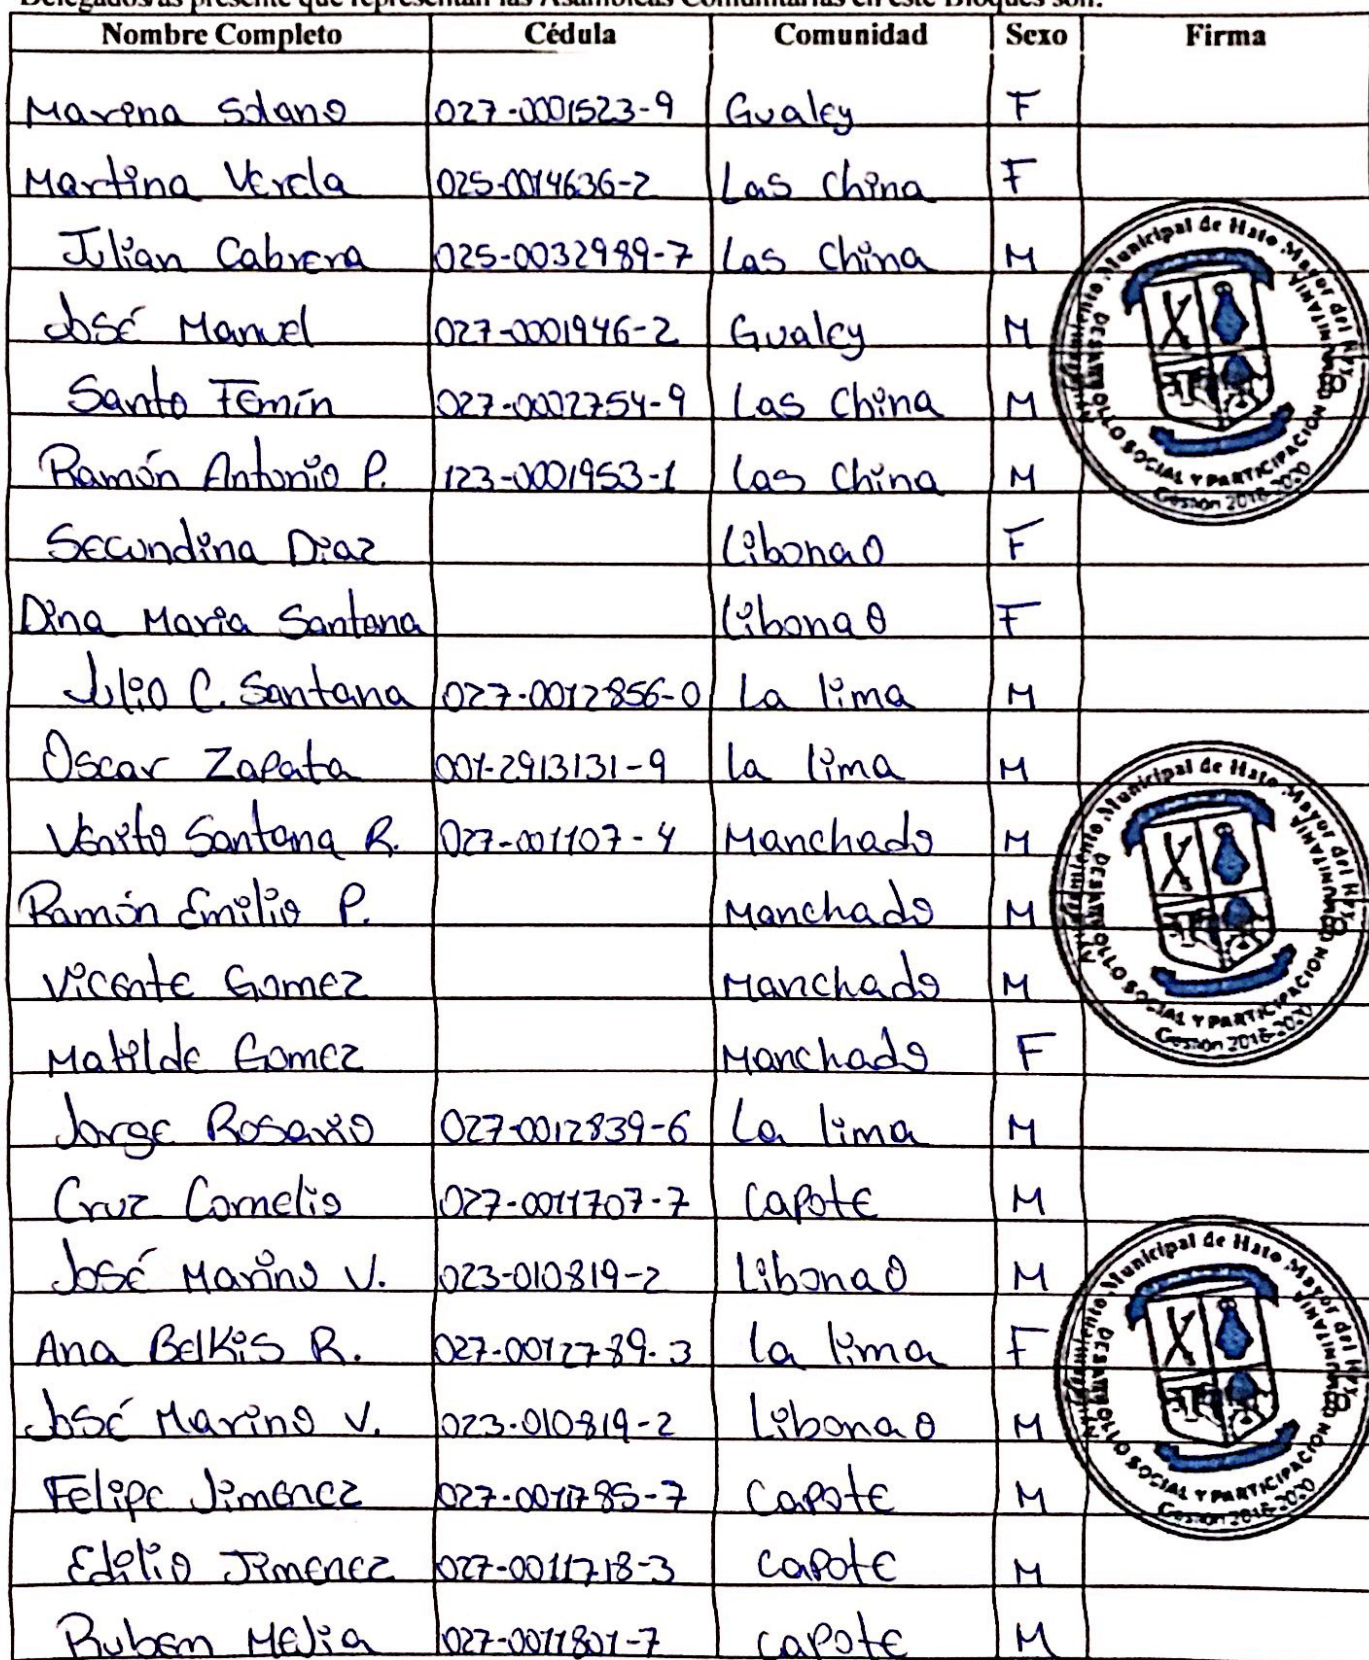 Delegados/as presente que representan las Asambleas Comunitarias en este Bloques son:
Nombre Completo Cédula Comunidad Sexo Firma
Marina Solano 027-0001523-9 Gualey F
Martina Verela 025-0014636-2 Las China F
Julian Cabrera 025-0032989-7 Las China M
José Manuel 027-0001946-2 Gualey M
Santo Femín 027-0002754-9 Las China M
Ramón Antonio P. 123-0001953-1 Las China M
Secundina Diaz Libonao F
Dina Maria Santana Libonao F
Julio C. Santana 027-0012856-0 La lima M
Oscar Zapata 001-2913131-9 la lima M
Venito Santana R. 027-001107-4 Manchado M
Ramón Emilio P. Manchado M
Vicente Gomez Manchado M
Matilde Gomez Manchado F
Jorge Rosario 027-0012839-6 La lima M
Cruz Cornelio 027-0011707-7 Capote M
José Marino V. 023-010819-2 Libonao M
Ana Belkis R. 027-0012789-3 la lima F
José Marino V. 023-010819-2 Libonao M
Felipe Jimenez 027-0011785-7 Capote M
Edilio Jimenez 027-0011718-3 Capote M
Ruben Mejia 027-0011801-7 Capote M
Ayuntamiento Municipal de Hato Mayor del Rey
DESARROLLO SOCIAL Y PARTICIPACION COMUNITARIA
Gestion 2016-2020
Ayuntamiento Municipal de Hato Mayor del Rey
DESARROLLO SOCIAL Y PARTICIPACION COMUNITARIA
Gestion 2016-2020
Ayuntamiento Municipal de Hato Mayor del Rey
DESARROLLO SOCIAL Y PARTICIPACION COMUNITARIA
Gestion 2016-2020